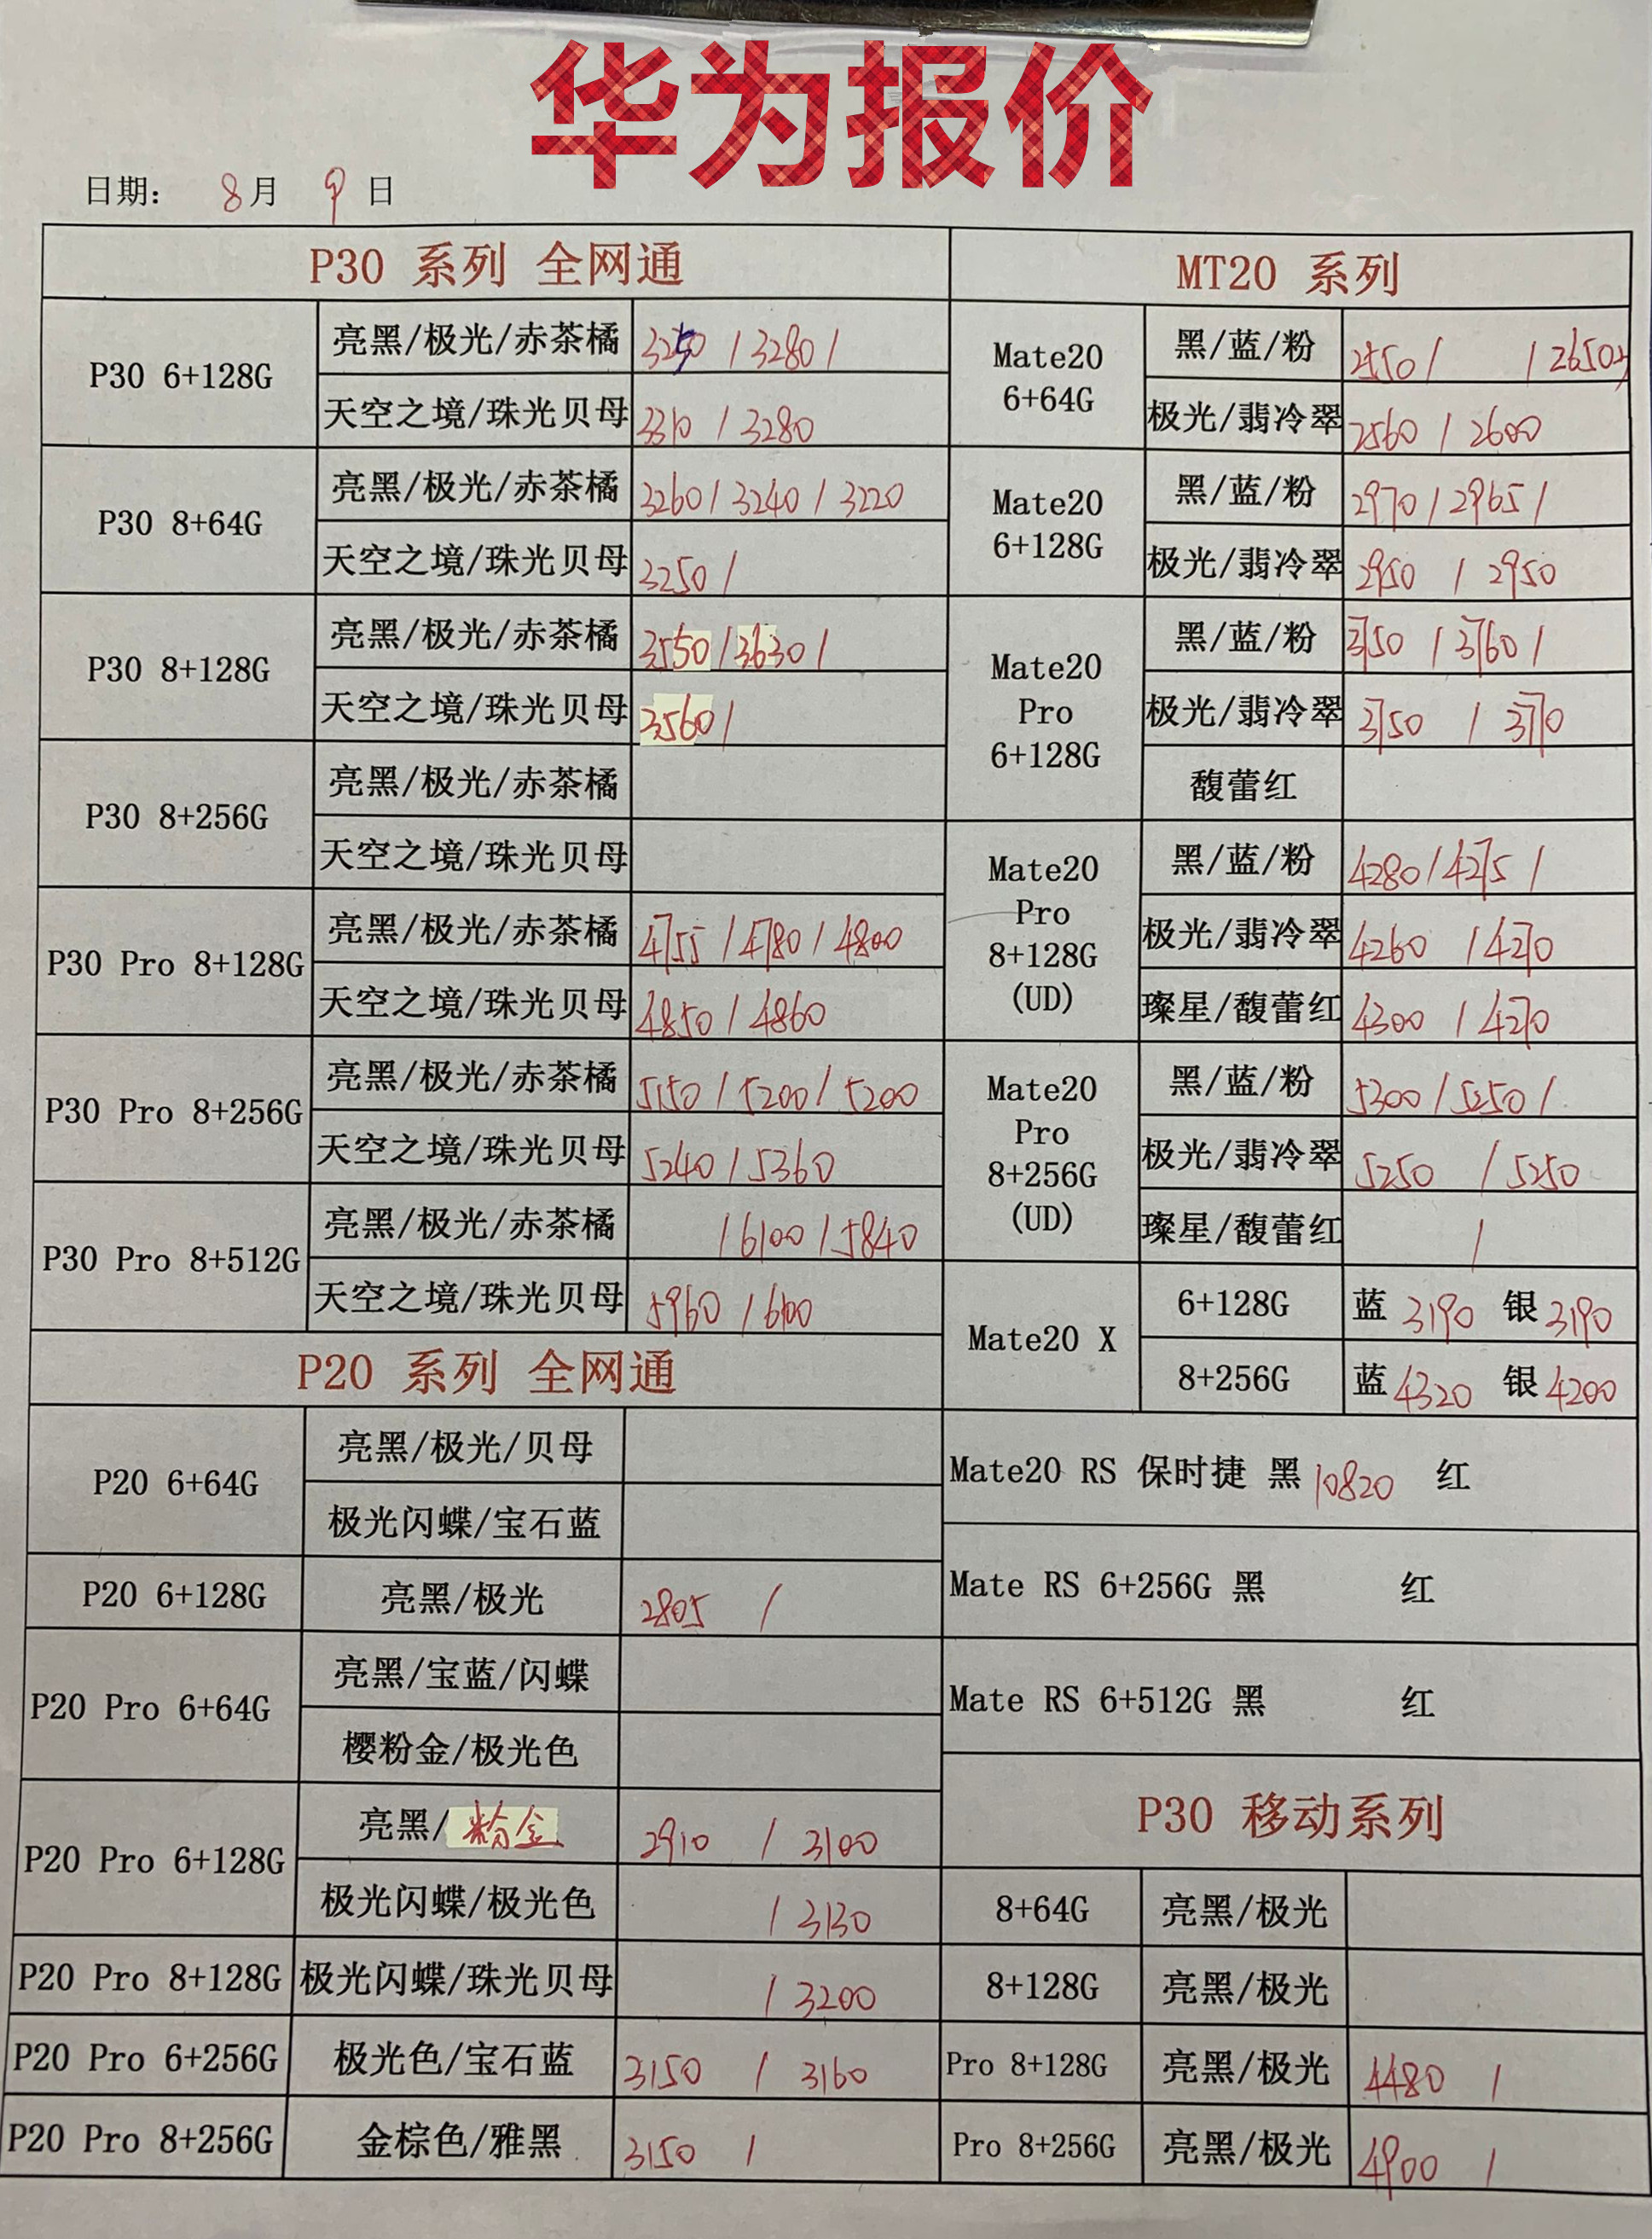 华为报价
日期： 8月 9日
P30 系列 全网通
P30 6+128G
亮黑/极光/赤茶橘 3250 / 3280 /
天空之境/珠光贝母 3310 / 3280
P30 8+64G
亮黑/极光/赤茶橘 3260 / 3240 / 3220
天空之境/珠光贝母 3250 /
P30 8+128G
亮黑/极光/赤茶橘 3550 / 3630 /
天空之境/珠光贝母 3560 /
P30 8+256G
亮黑/极光/赤茶橘
天空之境/珠光贝母
P30 Pro 8+128G
亮黑/极光/赤茶橘 4755 / 4780 / 4800
天空之境/珠光贝母 4850 / 4860
P30 Pro 8+256G
亮黑/极光/赤茶橘 5150 / 5200 / 5200
天空之境/珠光贝母 5240 / 5360
P30 Pro 8+512G
亮黑/极光/赤茶橘 / 6100 / 5840
天空之境/珠光贝母 5960 / 6100
P20 系列 全网通
P20 6+64G
亮黑/极光/贝母
极光闪蝶/宝石蓝
P20 6+128G 亮黑/极光 2805 /
P20 Pro 6+64G
亮黑/宝蓝/闪蝶
樱粉金/极光色
P20 Pro 6+128G
亮黑/粉金 2910 / 3100
极光闪蝶/极光色 / 3130
P20 Pro 8+128G 极光闪蝶/珠光贝母 / 3200
P20 Pro 6+256G 极光色/宝石蓝 3150 / 3160
P20 Pro 8+256G 金棕色/雅黑 3150 /
MT20 系列
Mate20
6+64G
黑/蓝/粉 2550 / / 2650
极光/翡冷翠 2560 / 2600
Mate20
6+128G
黑/蓝/粉 2970 / 2965 /
极光/翡冷翠 2950 / 2950
Mate20
Pro
6+128G
黑/蓝/粉 3750 / 3760 /
极光/翡冷翠 3750 / 3770
馥蕾红
Mate20
Pro
8+128G
(UD)
黑/蓝/粉 4280 / 4275 /
极光/翡冷翠 4260 / 4270
璨星/馥蕾红 4300 / 4270
Mate20
Pro
8+256G
(UD)
黑/蓝/粉 5300 / 5250 /
极光/翡冷翠 5250 / 5250
璨星/馥蕾红 /
Mate20 X
6+128G 蓝 3190 银 3190
8+256G 蓝 4320 银 4200
Mate20 RS 保时捷 黑 10820 红
Mate RS 6+256G 黑 红
Mate RS 6+512G 黑 红
P30 移动系列
8+64G 亮黑/极光
8+128G 亮黑/极光
Pro 8+128G 亮黑/极光 4480 /
Pro 8+256G 亮黑/极光 4900 /